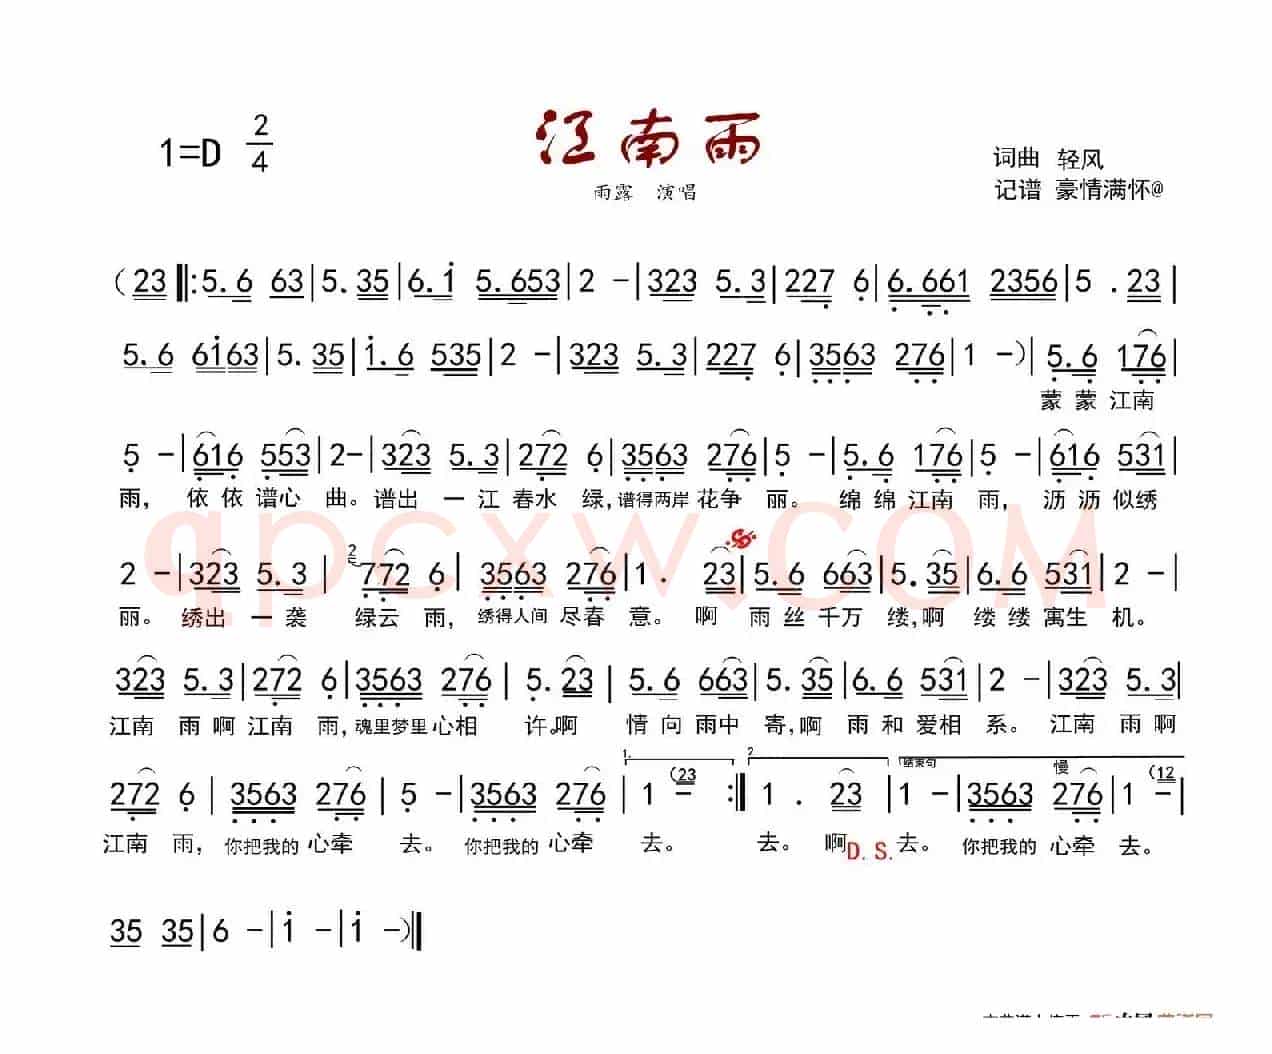 江南雨
1=D 2/4
词曲 轻风
雨露 演唱
记谱 豪情满怀@
(23 ‖:5.6 63|5.35|6.i 5.653|2 -|323 5.3|227 6|6.661 2356|5 .23|
5.6 6i63|5.35|i.6 535|2 -|323 5.3|227 6|3563 276|1 -)|5.6 176|
蒙 蒙 江南
5 -|616 553|2-|323 5.3|272 6|3563 276|5 -|5.6 176|5 -|616 531|
雨, 依 依 谱心 曲。谱出 一 江 春水 绿,谱得两岸 花争 丽。 绵 绵 江南 雨, 沥 沥 似绣
2 -|323 5.3|2 772 6|3563 276|1 . 23|5.6 663|5.35|6.6 531|2 -|
丽。 绣出 一 袭 绿云 雨, 绣得人间 尽春 意。 啊 雨 丝 千万 缕,啊 缕 缕 寓生 机。
323 5.3|272 6|3563 276|5.23|5.6 663|5.35|6.6 531|2 -|323 5.3|
江南 雨 啊 江南 雨,魂里梦里 心相 许。啊 情 向 雨中 寄,啊 雨 和 爱相 系。 江南 雨 啊
1. 2. 结束句
慢
272 6|3563 276|5 -|3563 276|1 - (23 :‖1 . 23|1 -|3563 276|1 - (12|
江南 雨, 你把我的 心牵 去。 你把我的 心牵 去。 去。 啊D.S.去。 你把我的 心牵 去。
35 35|6 -|i -|i -)‖
qpcxw.com